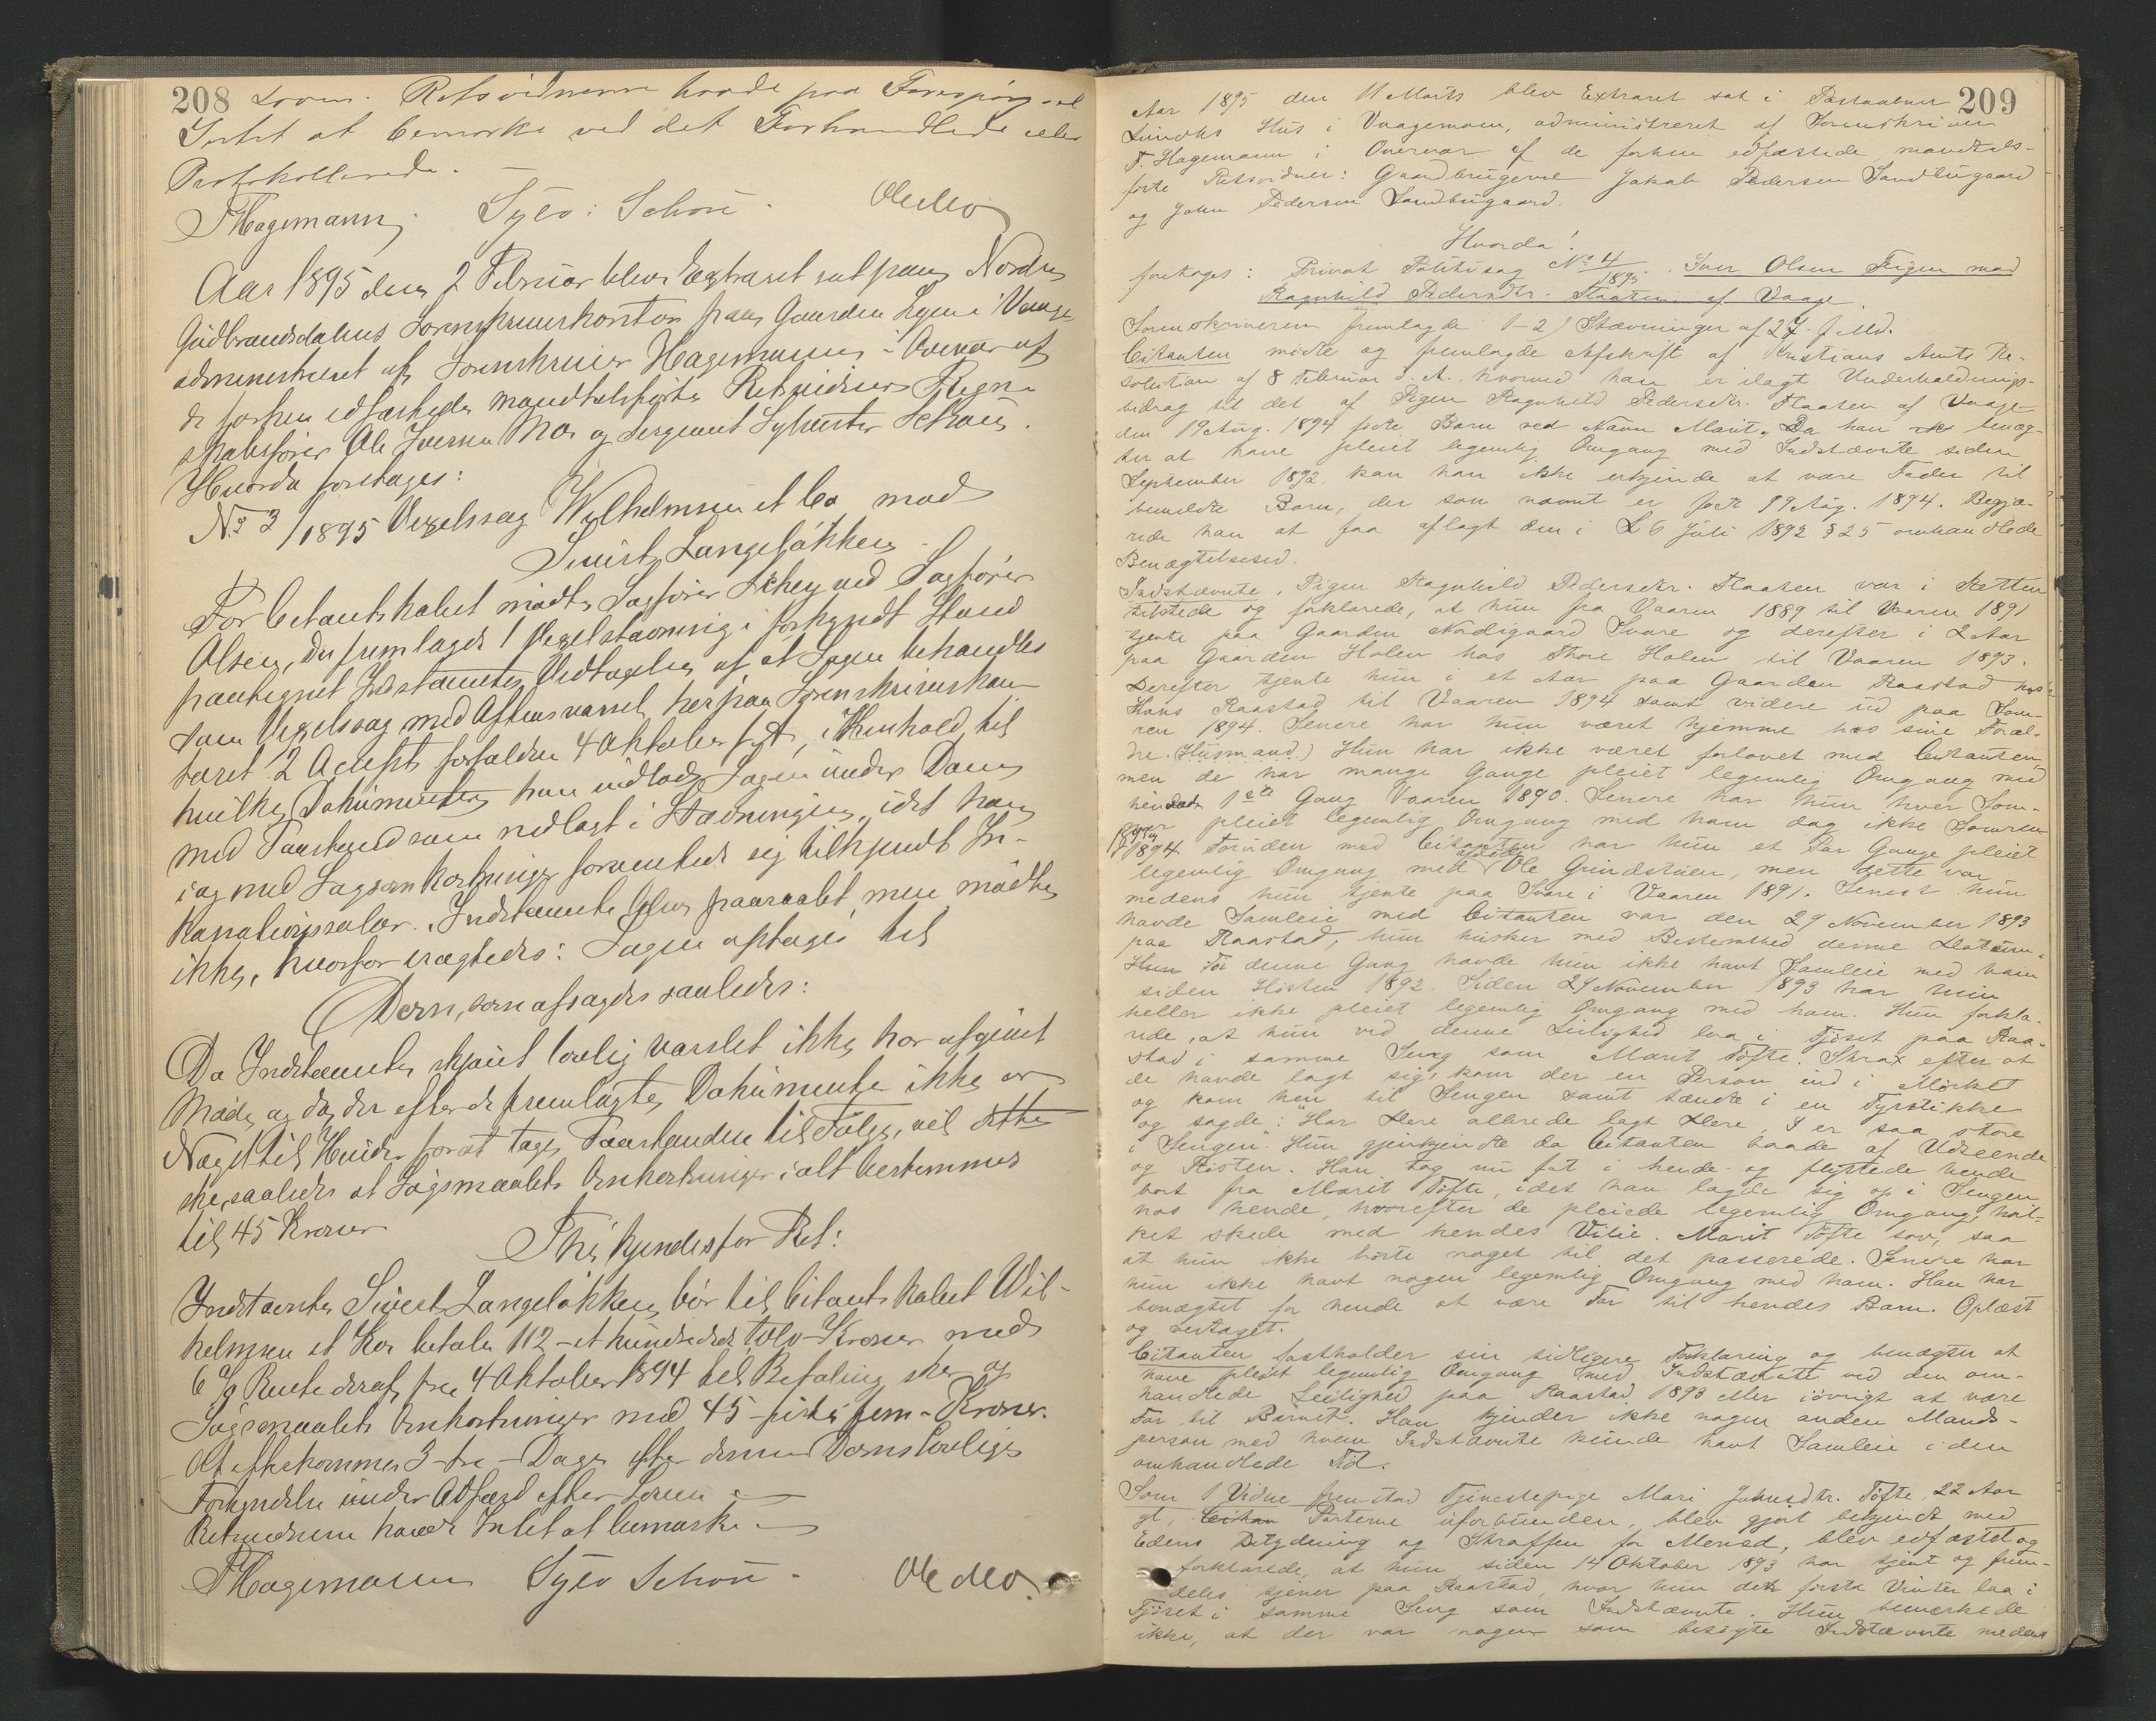 208
Loven. Retsvidnerne havde paa Forespørgsel
Intet at bemærke ved det Forhandlede eller
Protokollerede.
THagemann. Sylv: Schou. Ole Mo
Aar 1895 den 2 Februar blev Extraret sat paa Nordre
Gudbrandsdalens Sorenskriverkontor paa Gaarden i Vaage
administreret af Sorenskriver Hagemann i Overvær af
de forhen edfæstede mandtalsførte Retsvidner Regn-
skabsfører Ole Iversen Moe og Sergeant Sylvester Schou.
Hvorda foretages:
No 3/1895 Vexelsag Wilhelmsen et Co mod
Sivert Langeløkken.
For Citantskabet mødte Sagfører ved Sagfører
Olsen, der fremlagde 1 Vexelstævning i forkyndt Stand
paategnet Indstævntes Vedtagelse af at Sagen behandles
som Vexelsag med Aftens varsel her paa Sorenskriverkon-
toret. 2 Accept forfalden 4 Oktober f. A., i Henhold til
hvilke Dokumenter han indlod Sagen under Dom
med Paastand som nedlagt i Stævningen, idet han
i og med Sagsomkostninger forventede sig tilkjendt In-
kassationssalær. Indstævnte blev paaraabt, men mødte
ikke, hvorfor eragtedes: Sagen optages til
Dom, som afsagdes saaledes:
Da Indstævnte skjønt lovlig varslet ikke har afgivet
Møde, og da der efter de fremlagte Dokumenter ikke er
Noget til Hinder for at tage Paastanden til Følge, vil dette
ske, saaledes at Søgsmaalets Omkostninger i alt bestemmes
til 45 Kroner
Thi kjendes for Ret:
Indstævnte Sivert Langeløkken bør til Citantskabet Wil-
helmsen et Ko betale 112 - et hundrede tolv - Kroner med
6 % Rente deraf fra 4 Oktober 1894 til Betaling sker og
Søgsmaalets Omkostninger med 45 - firti fem - Kroner.
At efterkommes 3 - tre - Dage efter denne Doms lovlige
Forkyndelse under Adfærd efter Loven.
Retsvidnerne havde Intet at bemærke.
THagemann Sylv Schou. Ole Mo.
209
Aar 1895 den 11 Marts blev Extraret sat i Postaabner
Hus i Vaagemoen, administreret af Sorenskriver
T. Hagemann i Overvær af de forhen edfæstede mandtals-
førte Retsvidner: Gaardbrugerne Jakob Pedersen Sandbugaard
og John Pedersen Sandbugaard.
Hvorda!
foretages: Privat Politisag No 4/1895. Iver Olsen mod
Ragnhild Pedersdtr. Flaaten af Vaage.
Sorenskriveren fremlagde 1-2) Stævninger af 27 f. Md.
Citanten mødte og fremlagde Afskrift af Kristians Amts Re-
solution af 8 Februar d. A., hvorved han er ilagt Underholdnings-
bidrag til det af Pigen Ragnhild Pedersdtr. Flaaten af Vaage
den 19 Aug. 1894 fødte Barn ved Navn Marit. Da han benæg-
ter at have pleiet legemlig Omgang med Indstævnte siden
September 1892, kan han ikke erkjende at være Fader til
bemeldte Barn, der som nævnt er født 19 Aug. 1894. Begjæ-
rede han at faa aflagt den i L 6 Juli 1892 § 25 omhandlede
Benægtelsesed.
Indstævnte, Pigen Ragnhild Pedersdtr. Flaaten var i Retten
tilstede og forklarede, at hun fra Vaaren 1889 til Vaaren 1891
tjente paa Gaarden Nordigaard Svare og derefter i 2 Aar
paa Gaarden Holen hos Thore Holen til Vaaren 1893.
Derefter tjente hun i et Aar paa Gaarden Raastad hos
Hans Raastad til Vaaren 1894 samt videre ud paa Som-
ren 1894. Senere har hun været hjemme hos sine Foræl-
dre. (Husmand.) Hun har ikke været forlovet med Citanten,
men de har mange Gange pleiet legemlig Omgang med
hinanden 1ste Gang Vaaren 1890. Senere har hun hver Som-
mer pleiet legemlig Omgang med ham dog ikke Somren
1893 og 1894. Foruden med Citanten har hun et Par Gange pleiet
legemlig Omgang med Ole Grindstuen, men dette var
medens hun tjente paa Svare i Vaaren 1891. Senest hun
havde Samleie med Citanten var den 29 November 1893
paa Raastad, hun husker med Bestemthed denne Datum.
Hun Før denne Gang havde hun ikke havt Samleie med ham
siden Høsten 1892. Siden 29 November 1893 har hun
heller ikke pleiet legemlig Omgang med ham. Hun forkla-
rede, at hun ved denne Leilighed laa i Fjøset paa Raa-
stad i samme Seng som Marit Tøfte. Strax efter at
de havde lagt sig, kom der en Person ind i Mørket
og kom hen til Sengen samt tændte i en Fyrstikke
og sagde: "Har Dere allerede lagt Dere, I er saa store
i Sengen". Hun gjenkjendte da Citanten baade af Udseende
og Røsten. Han tog nu fat i hende og flyttede hende
bort fra Marit Tøfte, idet han lagde sig op i Sengen
hos hende, hvorefter de pleiede legemlig Omgang, hvil-
ket skede med hendes Vilie. Marit Tøfte sov, saa
at hun ikke hørte noget til det passerede. Senere har
hun ikke havt nogen legemlig Omgang med ham. Han har
benægtet for hende at være Far til hendes Barn. Oplæst
og vedtaget.
Citanten fastholder sin tidligere Forklaring og benægter at
have pleiet legemlig Omgang med Indstævnte ved den om-
handlede Leilighed paa Raastad 1893 eller iøvrigt at være
Far til Barnet. Han kjender ikke nogen anden Mands-
person med hvem Indstævnte kunde havt Samleie i den
omhandlede Tid.
Som 1 Vidne fremstod Tjenestepige Mari Johnsdtr. Tøfte, 22 Aar
gl., Parterne uforbunden, blev gjort bekjendt med
Edens Betydning og Straffen for Mened, blev edfæstet og
forklarede, at hun siden 14 Oktober 1893 har tjent og frem-
deles tjener paa Raastad, hvor hun den første Vinter laa i
Fjøset i samme Seng som Indstævnte. Hun bemærkede
ikke, at der var nogen som besøgte Indstævnte medens